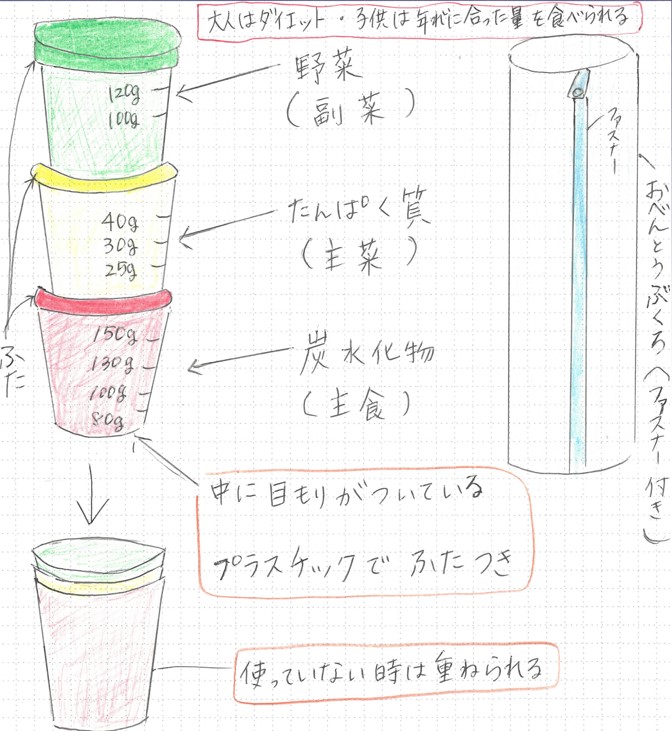 大人はダイエット・子供は年れいに合った量を食べられる
120g
100g
野菜
(副菜)
40g
30g
25g
たんぱく質
(主菜)
150g
130g
100g
80g
炭水化物
(主食)
ふた
ファスナー
おべんとうぶくろ(ファスナー付き)
中に目もりがついている
プラスチックで ふたつき
使っていない時は重ねられる